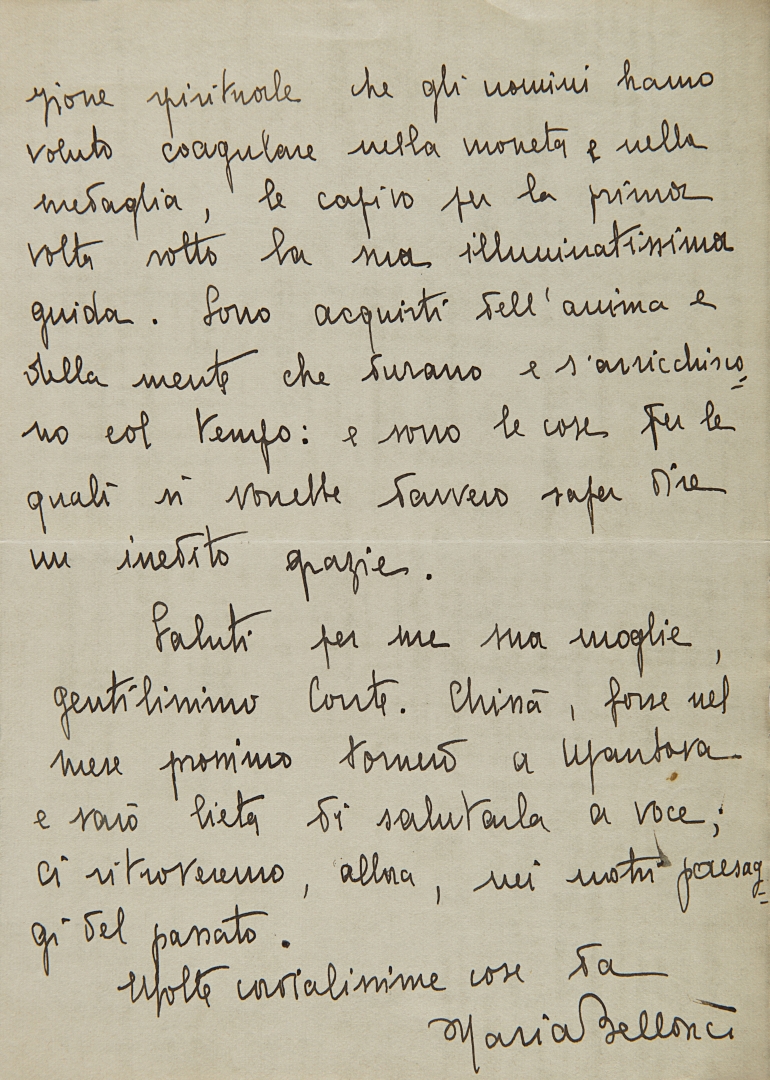 zione spirituale che gli uomini hanno
voluto coagulare nella moneta e nella
medaglia, le capivo per la prima
volta sotto la sua illuminatissima
guida. Sono acquisti dell'anima e
della mente che durano e s'arricchisco=
no col tempo: e sono le cose per le
quali si vorrebbe davvero saper dire
un inedito grazie.
Saluti per me sua moglie,
gentilissimo Conte. Chissà, forse nel
mese prossimo tornerò a Mantova
e sarò lieta di salutarla a voce;
ci ritroveremo, allora, nei nostri paesag=
gi del passato.
Molte cordialissime cose da
Maria Bellonci